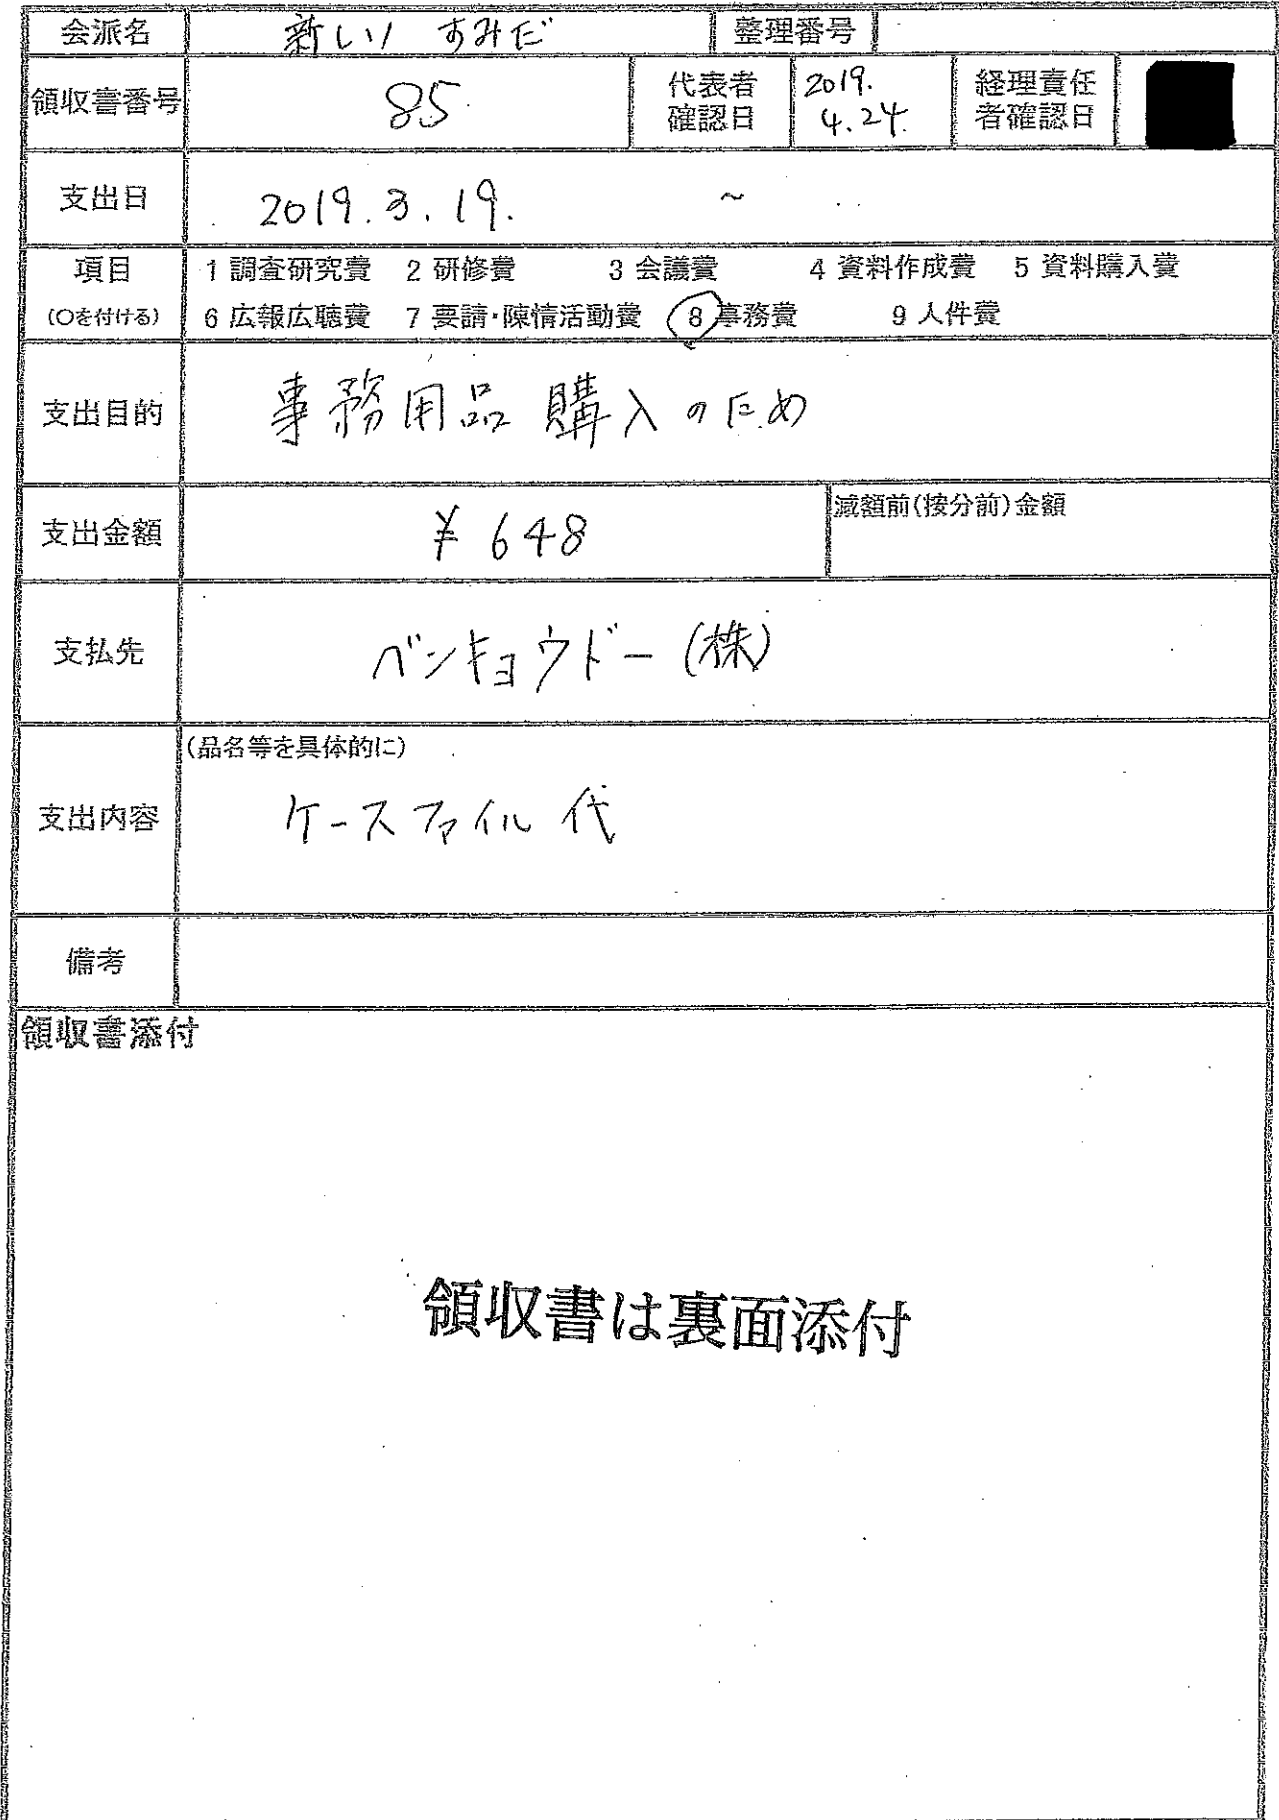 会派名 新しい すみだ 整理番号
領収書番号 85 代表者確認日 2019.4.24. 経理責任者確認日
支出日 2019.3.19. ~ . .
項目 1 調査研究費 2 研修費 3 会議費 4 資料作成費 5 資料購入費
(○を付ける) 6 広報広聴費 7 要請・陳情活動費 8 事務費 9 人件費
支出目的 事務用品購入のため
支出金額 ¥648 減額前(按分前)金額
支払先 ベンキョウドー(株)
(品名等を具体的に)
支出内容 ケースファイル代
備考
領収書添付
領収書は裏面添付